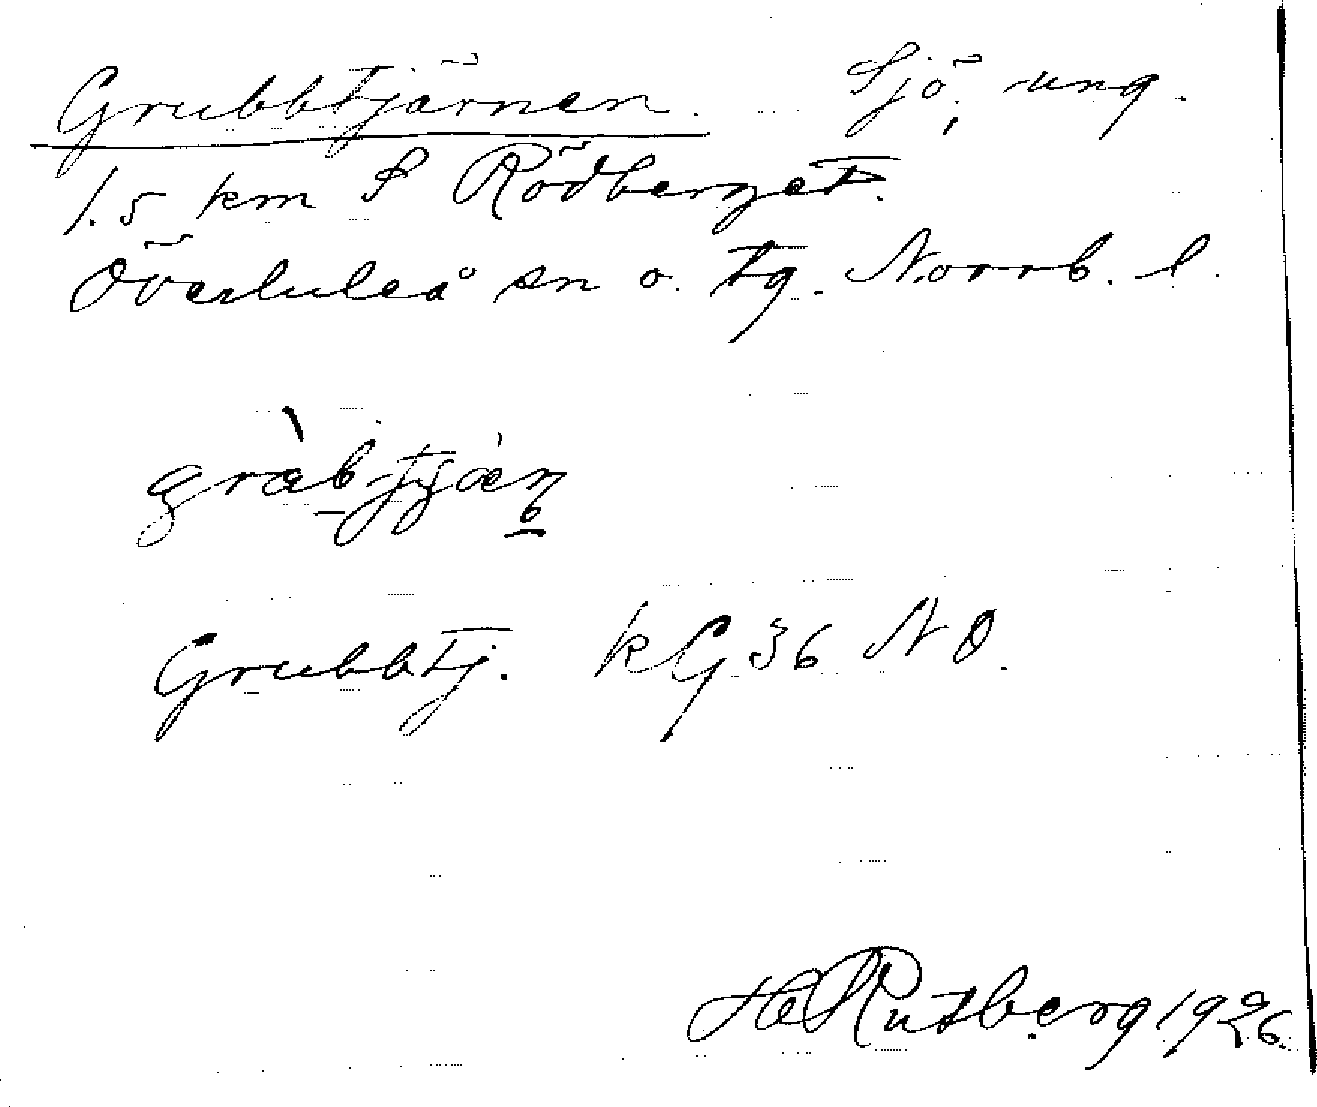 Grubbtjärnen. Sjö, ung.
1.5 km S Rödberget.
Överluleå sn o. tg. Norrb. l.
Grubbtj. kG 36 NO.
H Rutberg 1926.